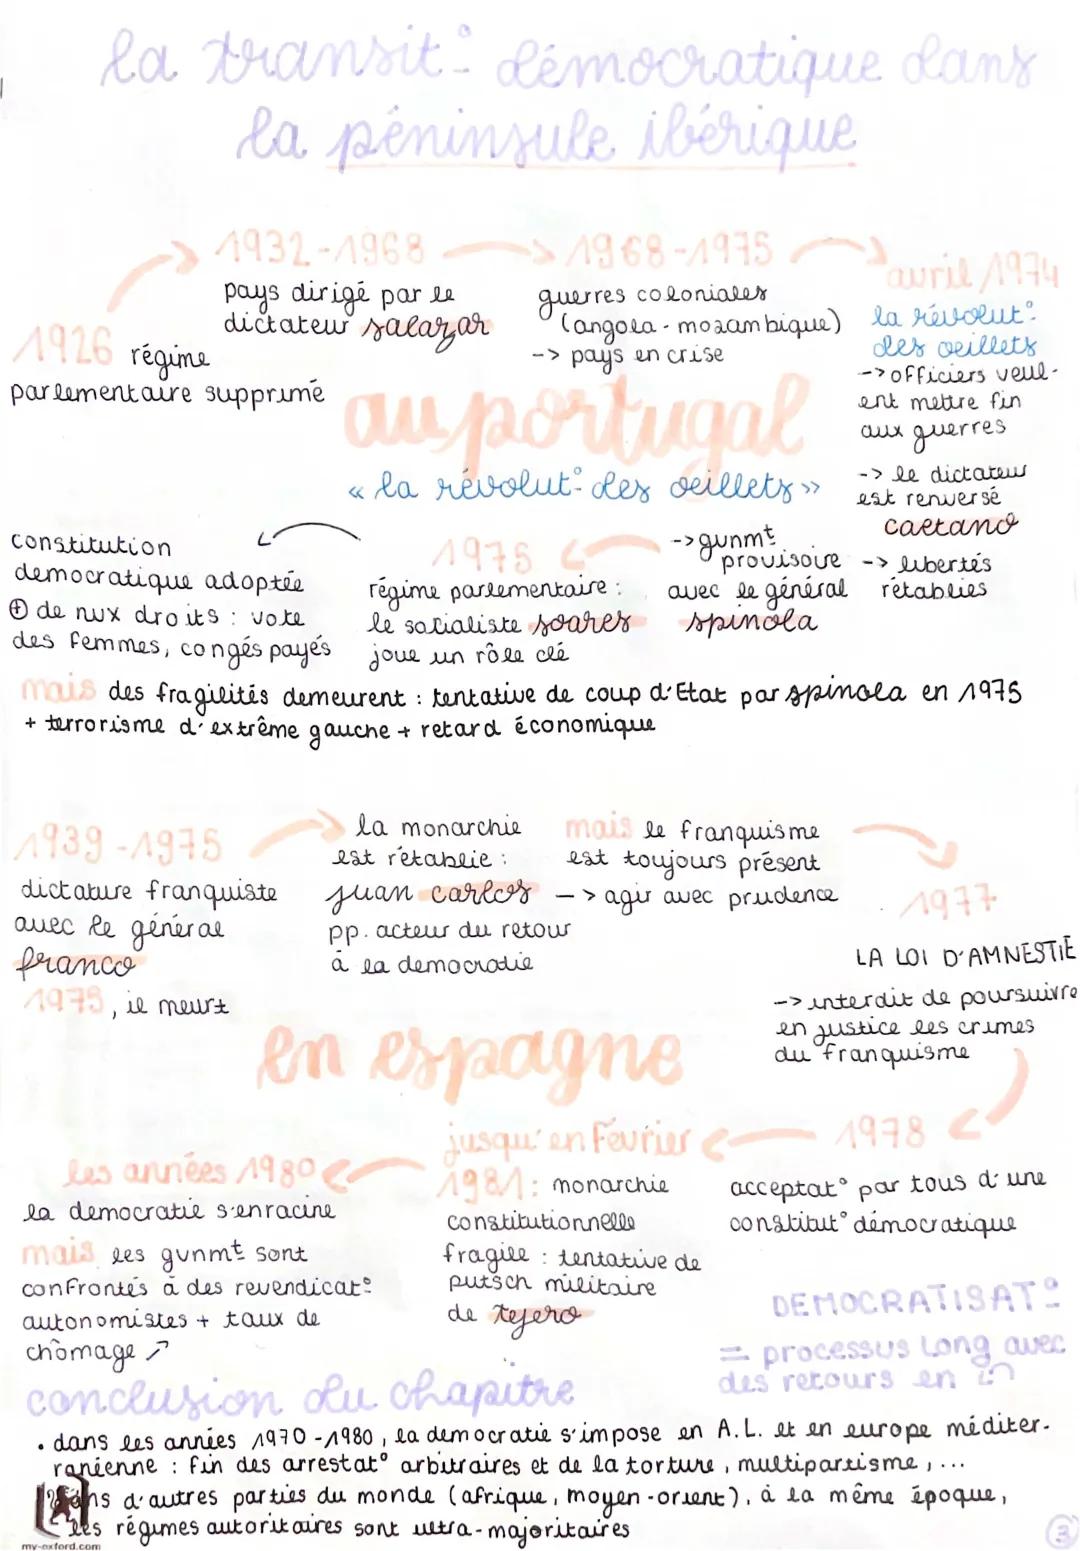 la transit° démocratique dans
la péninsule ibérique
1926 régime
parlementaire supprimé
1932-1968
pays dirigé par le
dictateur salazar
1968-1975
guerres coloniales
(angola - mozambique)
-> pays en crise
avril 1974
la révolut°
des oeillets
-> officiers veul-
ent mettre fin
aux guerres
-> le dictateur
est renversé
caetano
-> libertés
rétablies
au portugal
« la révolut° des oeillets »
-> gvnmt
provisoire
avec le général
spinola
1976
régime parlementaire :
le socialiste soares
joue un rôle clé
constitution
democratique adoptée
⊕ de nvx droits : vote
des femmes, congés payés
mais des fragilités demeurent : tentative de coup d'Etat par spinola en 1975
+ terrorisme d'extrême gauche + retard économique
1939-1975
dictature franquiste
avec le général
franco
1975, il meurt
la monarchie
est rétablie :
juan carlos
pp. acteur du retour
à la democratie
mais le franquisme
est toujours présent
-> agir avec prudence
1977
LA LOI D'AMNESTIE
-> interdit de poursuivre
en justice les crimes
du franquisme
en espagne
1978
acceptat° par tous d'une
constitut° démocratique
jusqu'en février
1981 : monarchie
constitutionnelle
fragile : tentative de
putsch militaire
de tejero
les années 1980
la democratie s'enracine
mais les gvnmt sont
confrontés à des revendicat°
autonomistes + taux de
chômage ↗
DEMOCRATISAT°
= processus long avec
des retours en
conclusion du chapitre
• dans les années 1970-1980, la democratie s'impose en A.L. et en europe méditer-
ranéenne : fin des arrestat° arbitraires et de la torture, multipartisme, ...
d'autres parties du monde (afrique, moyen-orient), à la même époque,
les régimes autoritaires sont ultra-majoritaires
my-oxford.com
3